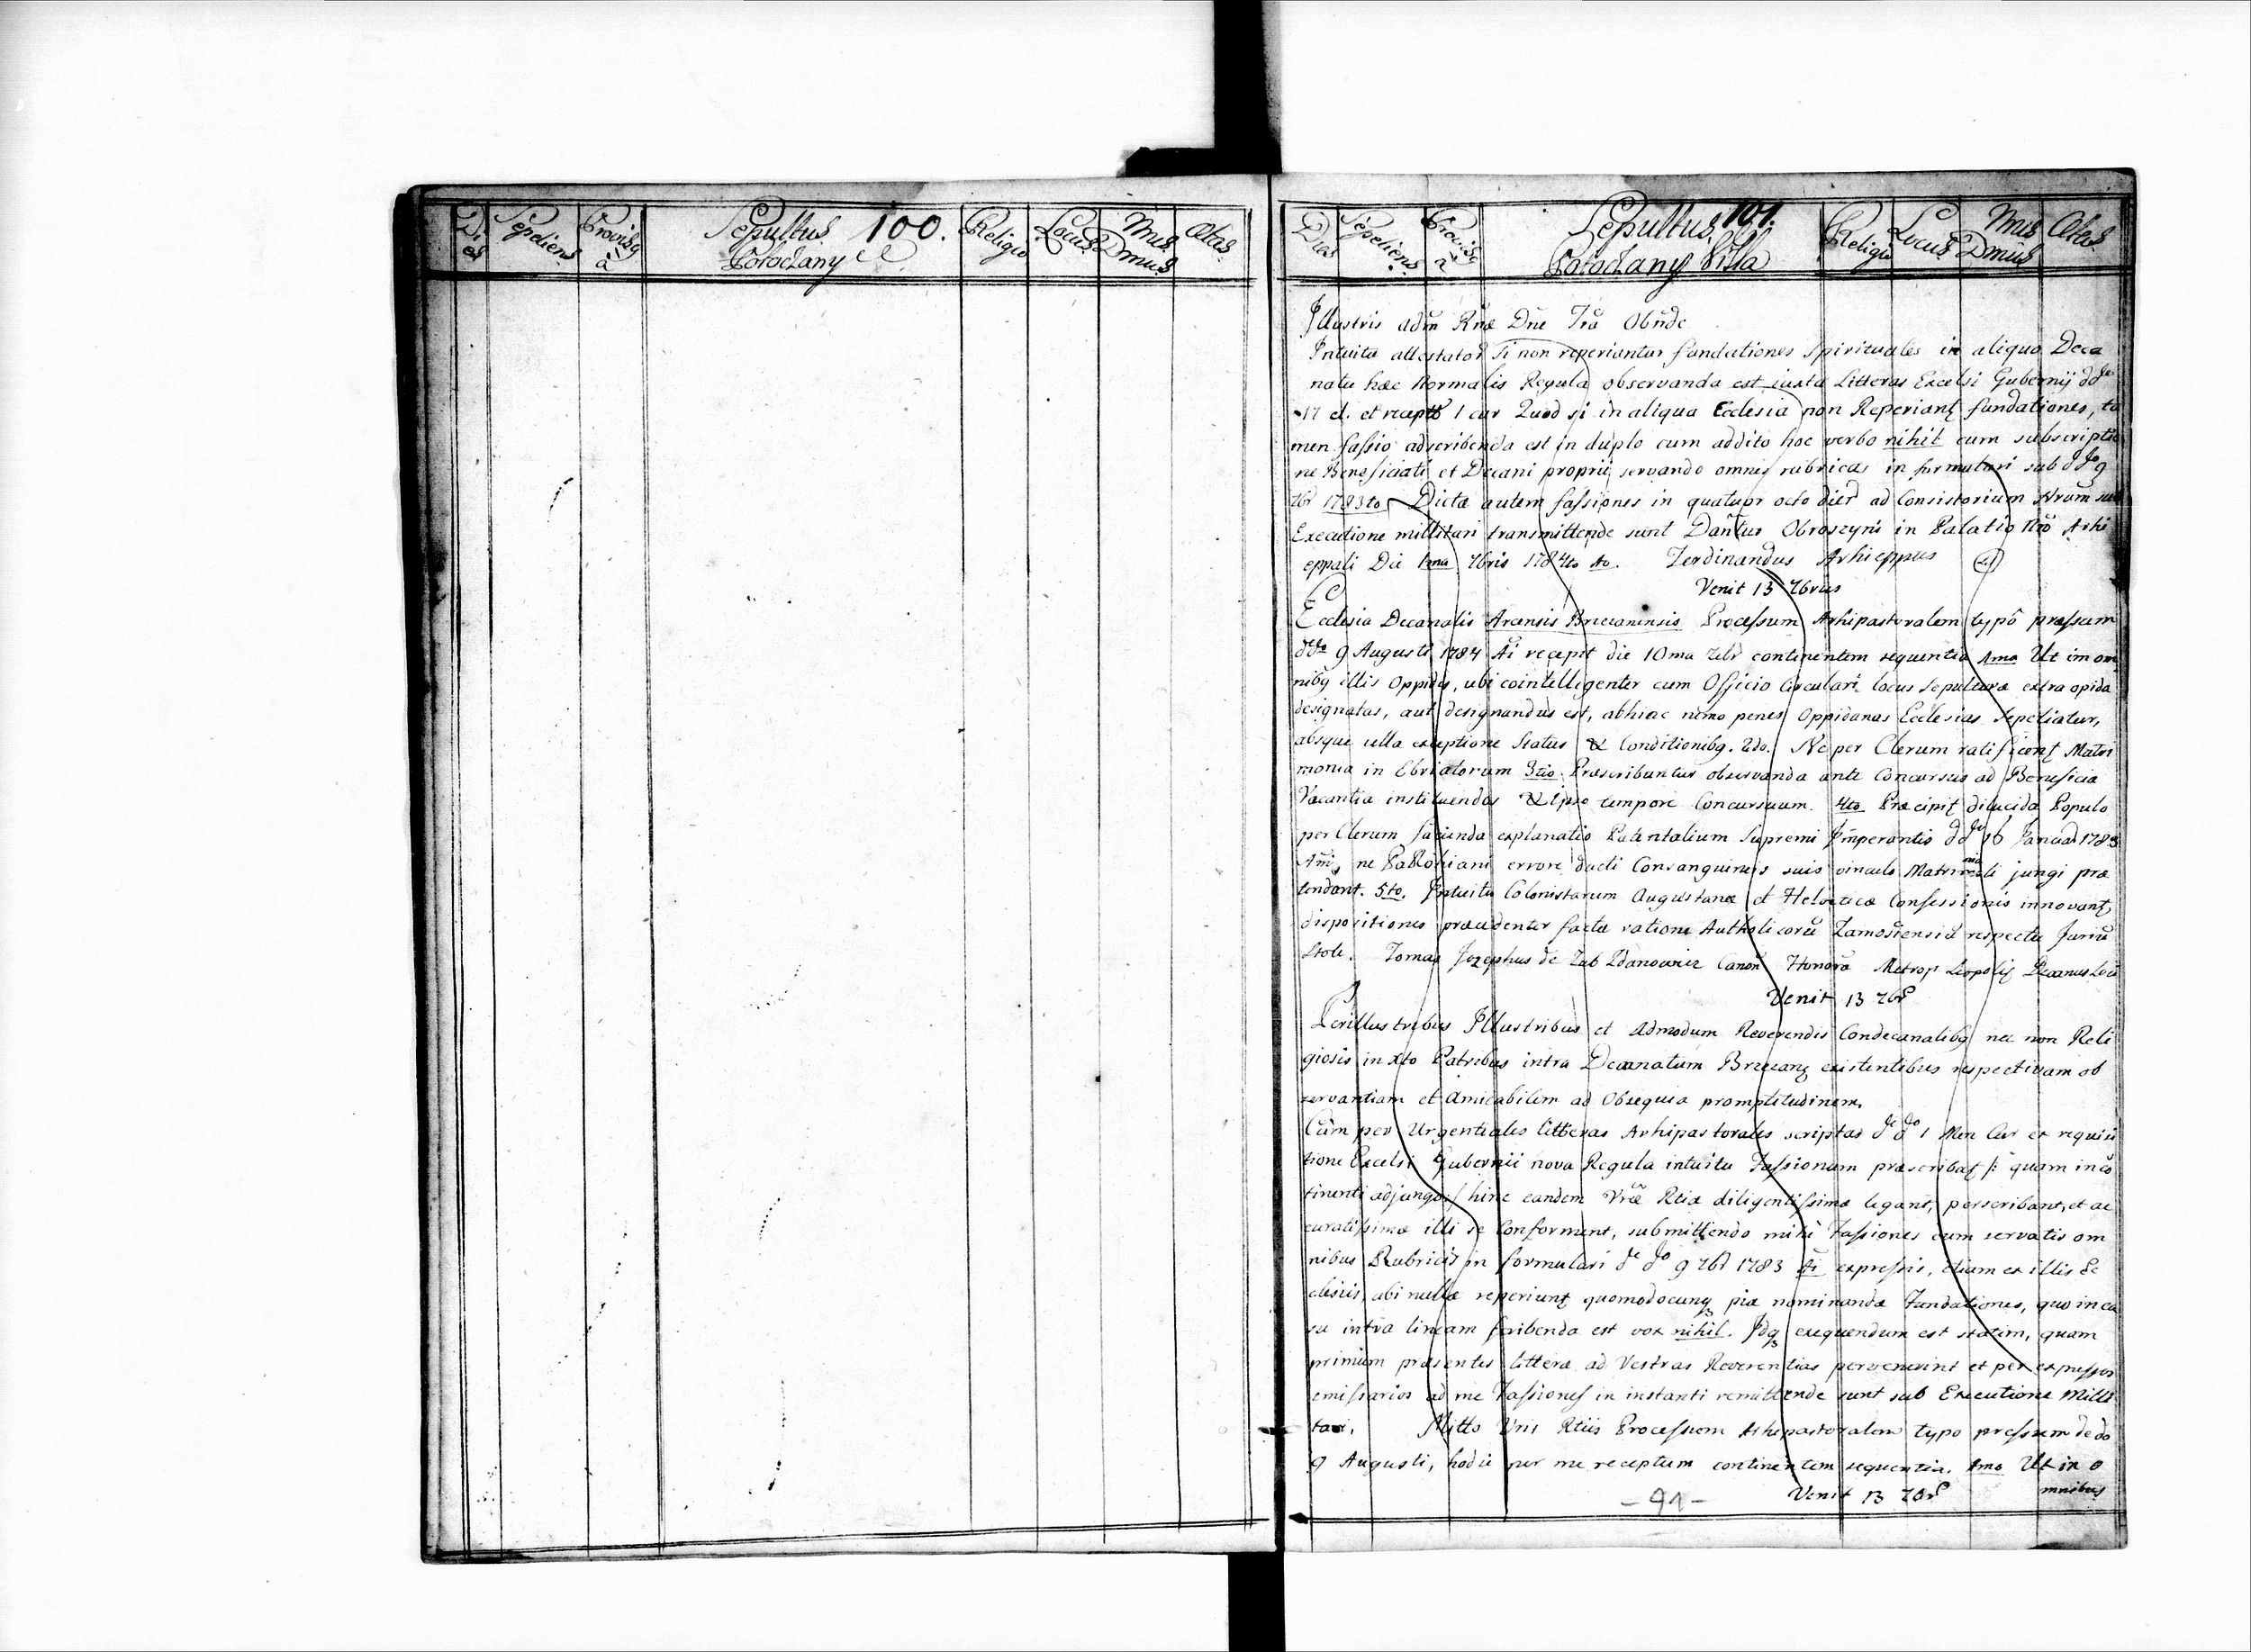 Dies Sepeliens Provisus à Sepultus 100. Religio Locus Mus Dmus Ætas
Potoczany
Dies Sepeliens Provis9 à Sepultus 101. Religio Locus Mus Dmus Ætas
Potoczany Villa
Illustris adm̃ Rnde Dñe Fra Obñde
Intuitu allestator si non reperiantur fundationes spirituales in aliquo Deca
natu hæc Normalis Regula observanda est iuxta Litteras Excelsi Gubernij ddto
17 et recepto 1 cur Quod si in aliqua Ecclesia non Reperiant fundationes, ta
men fassio adscribenda est in duplo cum addito hoc verbo nihil cum subscriptio
ne Beneficiati et Decani proprii servando omnes rubricas in formulari sub ddto 9
7br 1783tio Dictæ autem fassiones in quatuor octo dier ad Consistorium Nrum sub
Executione millitari transmittende sunt Dantur Obroszyni in Palatio Nro Arhi
eppali Die 1ma 7bris 1784to Ao. Ferdinandus Arhieppus
Venit 13 7brus
Ecclesia Decanalis Arcensis Brzezanensis Processum Arhipastoralem typô pressum
ddto 9 Augusti 1784 Ai recepit die 10ma 7br continentem sequentia 1mo Ut im om
nibq illis Oppidis, ubi cointelligenter cum Officio Circulari locus sepulturæ extra opida
designatus, aut designandus est, abhinc nemo penes Oppidanas Ecclesias sepeliatur,
absque ulla exceptione status & Conditionibq. 2do. Ne per Clerum ratificent Matri
monia in Ebriatorum 3tio Præscribuntur observanda ante Concursus ad Beneficia
Vacantia instituendos & ipso tempore Concursuum. 4to Præcipit dilucida Populo
per Clerum facienda explanatio Patentalium Supremi Imperantis ddto 16 Januar 1783
Ani, ne Parohiani errore ducti Consanguineis suis vinculo Matrimoniali jungi præ
tendant. 5to. Intuitu Colonistarum Augustanæ et Helveticæ Confessionis innovant
dispositiones præcedenter factæ ratione Acatholicorũ Zamosciensiũ respectu Juriũ
Stole. Tomas Josephus de Zub Zdanowicz Canon Honora Metrop Leopolis Decanus Loci
Venit 13 7br
Perillustribus Illustribus et Admodum Reverendis Condecanalibq nec non Reli
giosis in Xto Patribus intra Decanatum Brzezan existentibus respectivam ob
servantiam et amicabilem ad Obsequia promptitudinem.
Cùm per Urgentiales litteras Arhipastorales scriptas de do 1 Men Cur ex requisi
tione Excelsi Gubernii nova Regula intuitu Fassionum præscribat /: quam in cõ
tinenti adjungo :/ hinc eandem Vræ Rtiæ diligentissime legant, perscribant, et ac
curatissime illi se Conforment, submittendo mihi Fassiones cum servatis om
nibus Rubricis in formulari de do 9 7br 1783 Ai expressis, etiam ex illis Ec
clesiis, ubi nullæ reperiunt quomodocunq piæ nominandæ Fundationes, quo in ca
su intra lineam scribenda est vox nihil. Idq exequendum est statim, quam
primum præsentes litteræ ad Vestras Reverentias pervenerint et per expressos
emissarios ad me Fassiones in instanti remittende sunt sub Executione Milli
tari. Mitto Vris Rtiis Processum Arhipastoralem typo pressum de do
9 Augusti, hodie per me receptum continentem sequentia. 1mo Ut in o
mnibus
Venit 13 7br
- 91 -